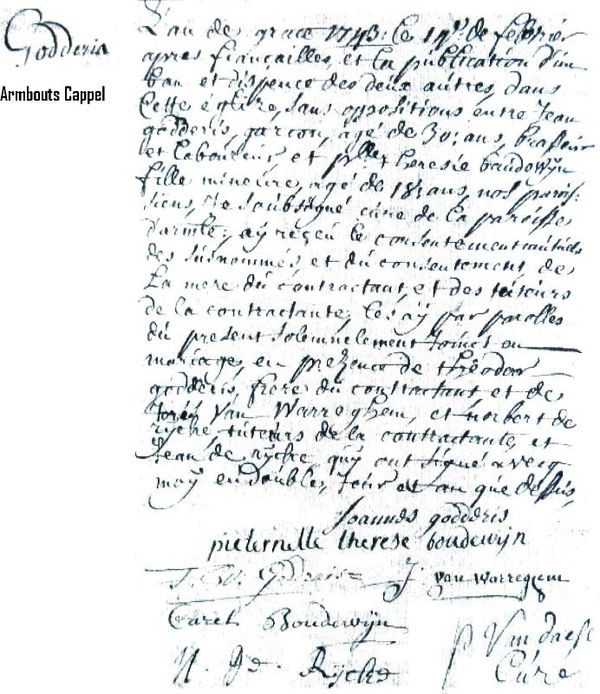 Godderis
Armbouts Cappel
L'an de grace 1743: le de febvrier
apres fiançailles, et la publication d'un
ban et dispence des deux autres, dans
cette église, sans oppositions entre Jean
godderis, garçon, agé de 30: ans, brasseur
et laboureur, et theresie baudewijn
fille mineure, agé de 18: ans, nos parois:
siens, Je soubsigné cure de la paroisse
d'armb: aÿ reçeu le consentement
des susnommés, et du consentement de
La mere du contractant, et des tuteurs
de la contractante, les aÿ par parolles
du present solemnelement Joinct en
mariage, en presence de theodor
godderis, frere du contractant, et de
van Warreghem, et norbert de
rycke, tuteurs de la contractante, et
Jean de rycke, quÿ ont signé avecq
moÿ en double, Jour et an que dessus,
Joannes godderis
pieternelle therese boudewijn
Godderis J. van warregem
Carel Boudewijn
N. De Rycke P Van daele
Curé